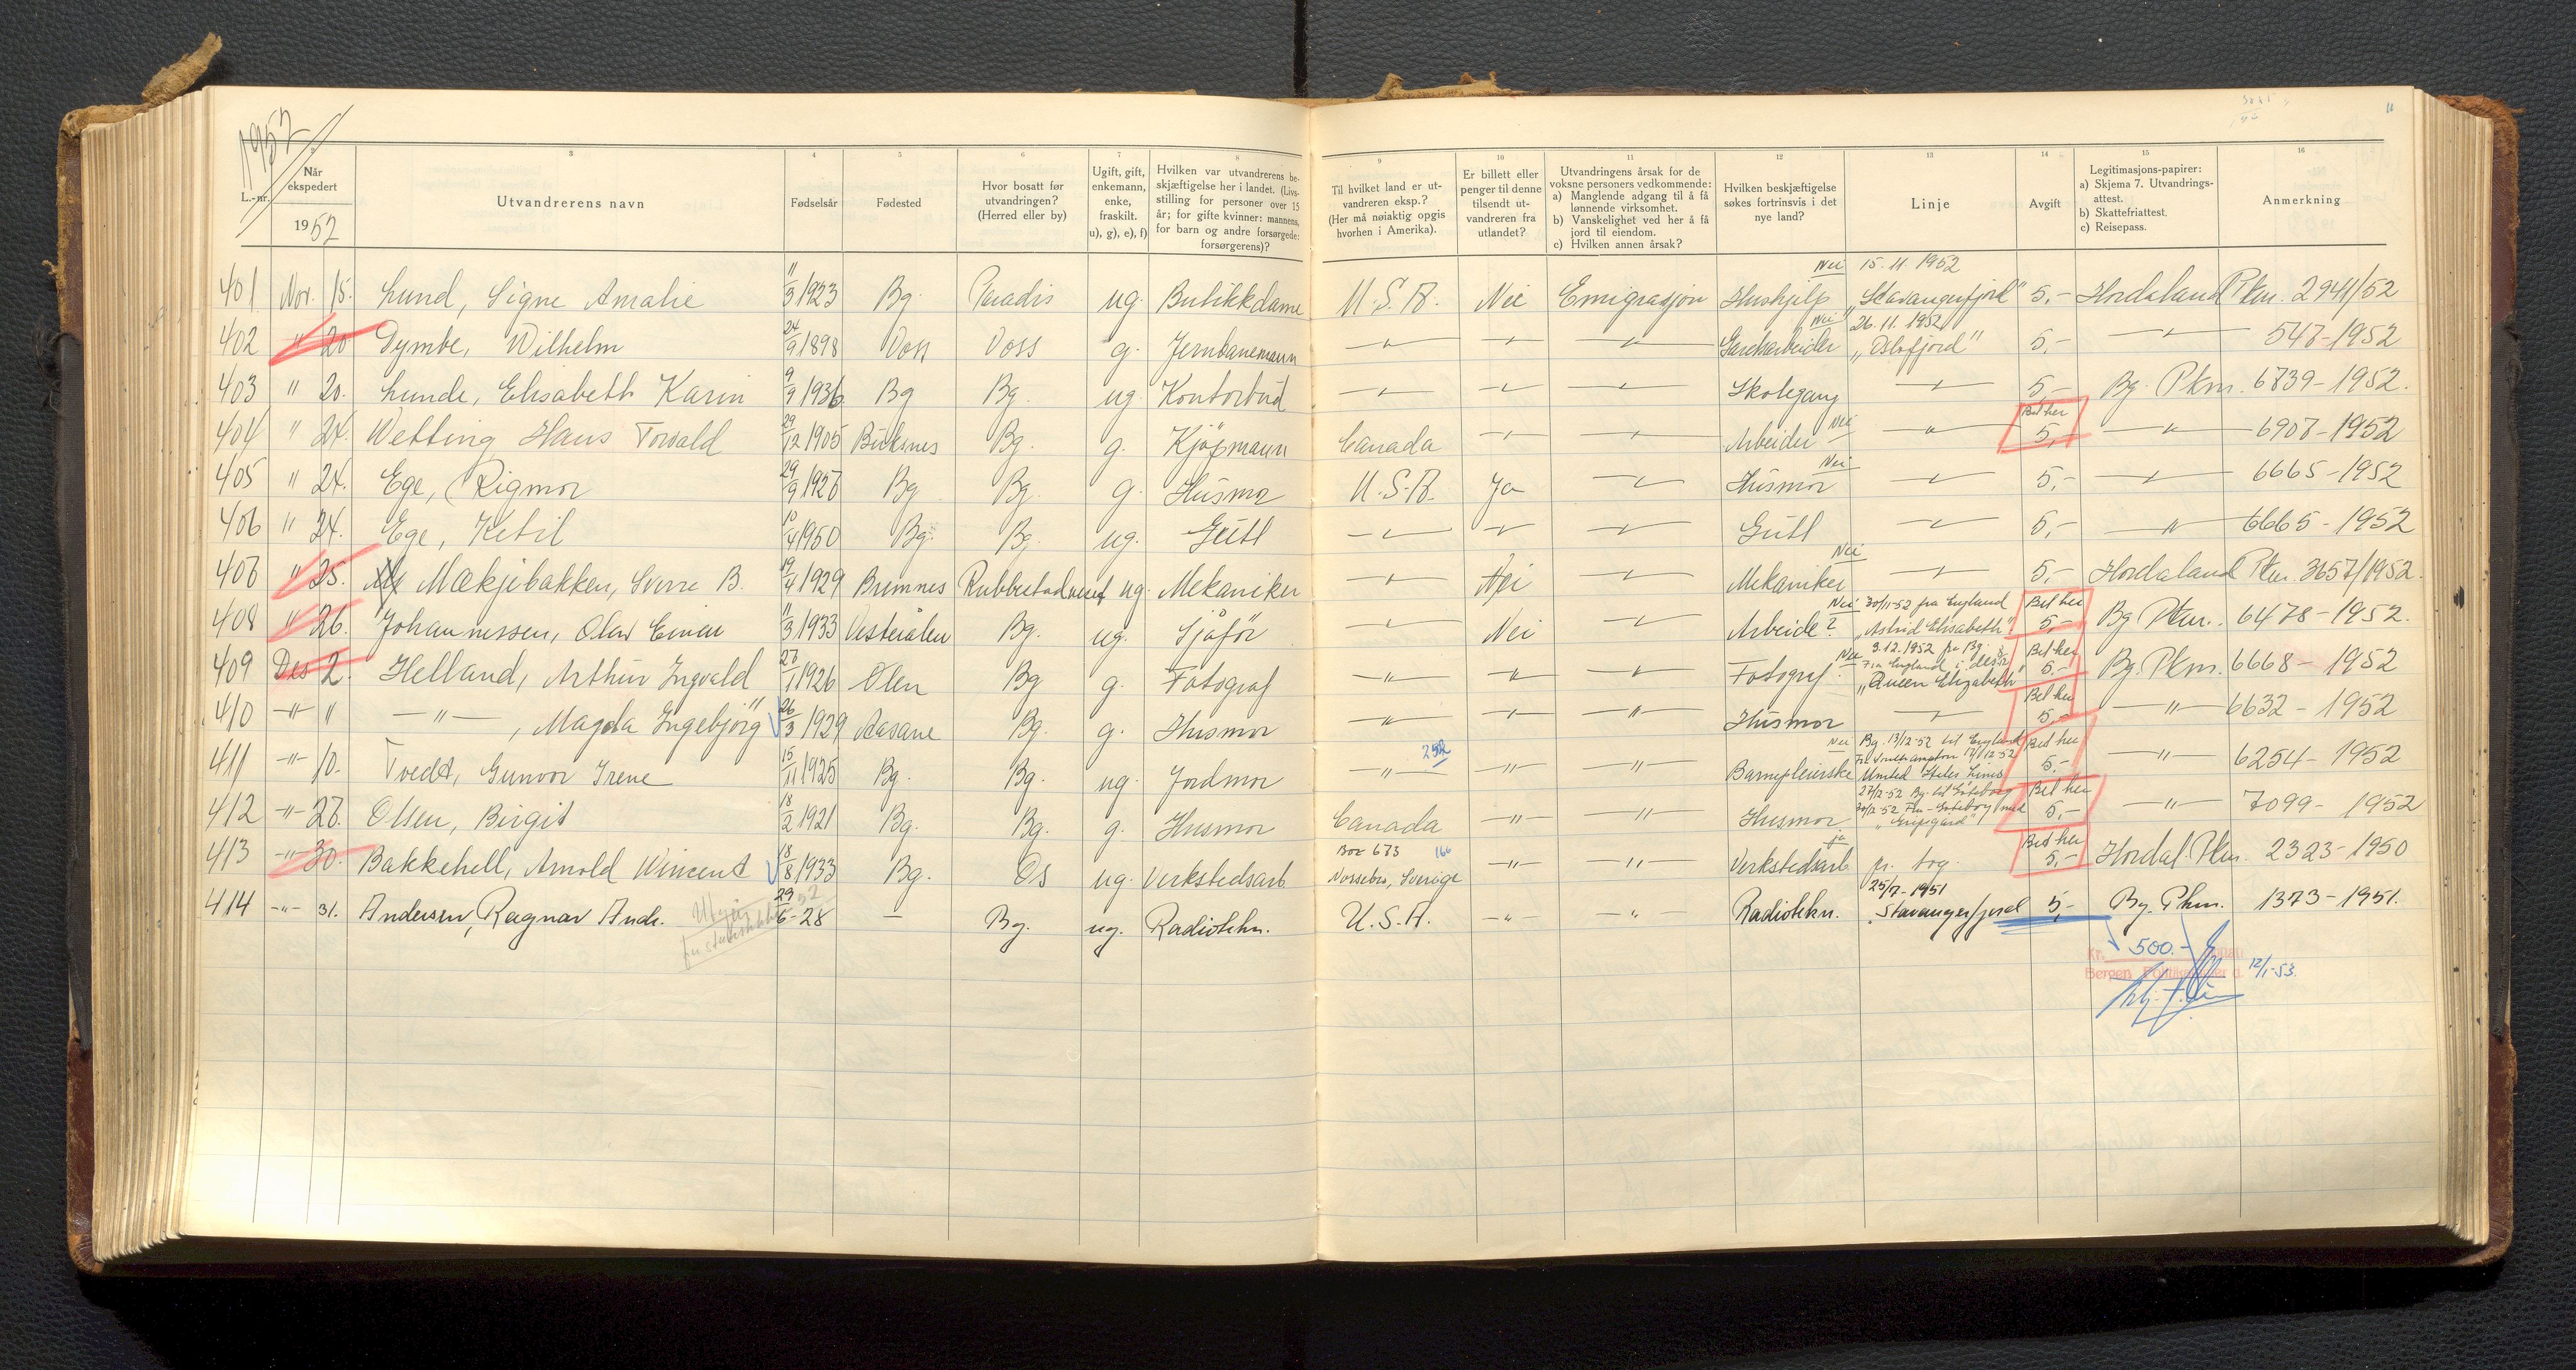 1952
L.-nr.
Når ekspedert
1952
3
Utvandrerens navn
4
Fødselsår
5
Fødested
6
Hvor bosatt før utvandringen? (Herred eller by)
7
Ugift, gift, enkemann, enke, fraskilt. u), g), e), f)
8
Hvilken var utvandrerens beskjæftigelse her i landet. (Livsstilling for personer over 15 år; for gifte kvinner: mannens, for barn og andre forsørgede: forsørgerens)?
9
Til hvilket land er utvandreren eksp.? (Her må nøiaktig opgis hvorhen i Amerika).
10
Er billett eller penger til denne tilsendt utvandreren fra utlandet?
11
Utvandringens årsak for de voksne personers vedkommende:
a) Manglende adgang til å få lønnende virksomhet.
b) Vanskelighet ved her å få jord til eiendom.
c) Hvilken annen årsak?
12
Hvilken beskjæftigelse søkes fortrinsvis i det nye land?
13
Linje
14
Avgift
15
Legitimasjons-papirer:
a) Skjema 7. Utvandringsattest.
b) Skattefriattest.
c) Reisepass.
16
Anmerkning
401 Nov. 15. Lund, Signe Amalie 11/3 1923 Bg. Paradis ug. Butikkdame U.S.A. Nei Emigrasjon Hushjelp Nei 15.11.1952 "Stavangerfjord" 5,- Hordaland Pkm. 2941/52
402 " 20 Dymbe, Wilhelm 24/9 1898 Voss Voss g. Jernbanemann " " " Gardsarbeider Nei 26.11.1952 "Oslofjord" 5,- " 547-1952
403 " 20. Lunde, Elisabeth Karin 9/9 1936 Bg Bg. ug. Kontorbud " " " Skolegang " 5,- Bg. Pkm. 6839-1952.
404 " 24. Wetting Hans Torvald 29/12 1905 Bg. g. Kjøpmann Canada " " Arbeider Nei " Bet her 5,- " 6907-1952
405 " 24. Ege, Rigmor 29/9 1927 Bg Bg. g. Husmor U.S.A. Ja " Husmor Nei " 5,- " 6665-1952
406 " 24. Ege, Ketil 10/4 1950 Bg. Bg. ug. Gutt " " " Gutt " 5,- " 6665-1952
407 " 25. Mækjebakken, Sverre B. 19/4 1929 Bremnes Rubbestadneset ug. Mekaniker " Nei " Mekaniker Nei " 5,- Hordaland Pkm. 3657/1952.
408 " 26. Johannessen, Olav Einar 11/3 1933 Vesterålen Bg. ug. Sjåfør " Nei " Arbeide? Nei 30/11-52 fra England "Astrid Elisabeth" Bet her 5,- Bg Pkm. 6478-1952.
409 Des 2. Helland, Arthur Ingvald 27/1 1926 Ølen Bg g. Fotograf " " " Fotograf. Nei 9.12.1952 fra Bg. Fra England i des. "Queen Elizabeth" Bet her 5,- Bg. Pkm. 6668-1952
410 " " " , Magda Ingebjørg 26/3 1929 Aasane Bg. g. Husmor " " " Husmor " Bet her 5,- " 6632-1952
411 " 10. Tvedt, Gunvor Irene 15/11 1925 Bg. Bg. ug. Jordmor " 252 " " Barnepleierske Nei Bg. 13/12-52 til England Fr. Southampton 17/12-52 United States Lines Bet her 5,- " 6254-1952
412 " 27. Olsen, Birgit 18/2 1921 Bg. Bg. g. Husmor Canada " " Husmor 27/12-52 Bg. til Göteborg 30/12-52 Fra Göteborg med "Gripsholm" Bet her 5,- " 7099-1952
413 " 30. Bakkehell, Arnold Wincent 18/8 1933 Bg. Os ug. Verkstedsarb. Box 673 166 Nossebro, Sverige " " Verkstedsarb. ja pr. tog. Bet her 5,- Hordal. Pkm. 2323-1950
414 " 31. Andersen, Ragnar Andr. Utgår 29/6-28 - Bg. ug. Radiotekn. U.S.A. " " Radiotekn. 25/7-1951 "Stavangerfjord 5,- Bg. Pkm. 1373-1951.
kr. 500.-
Bergen Politikammer 12/1-53.